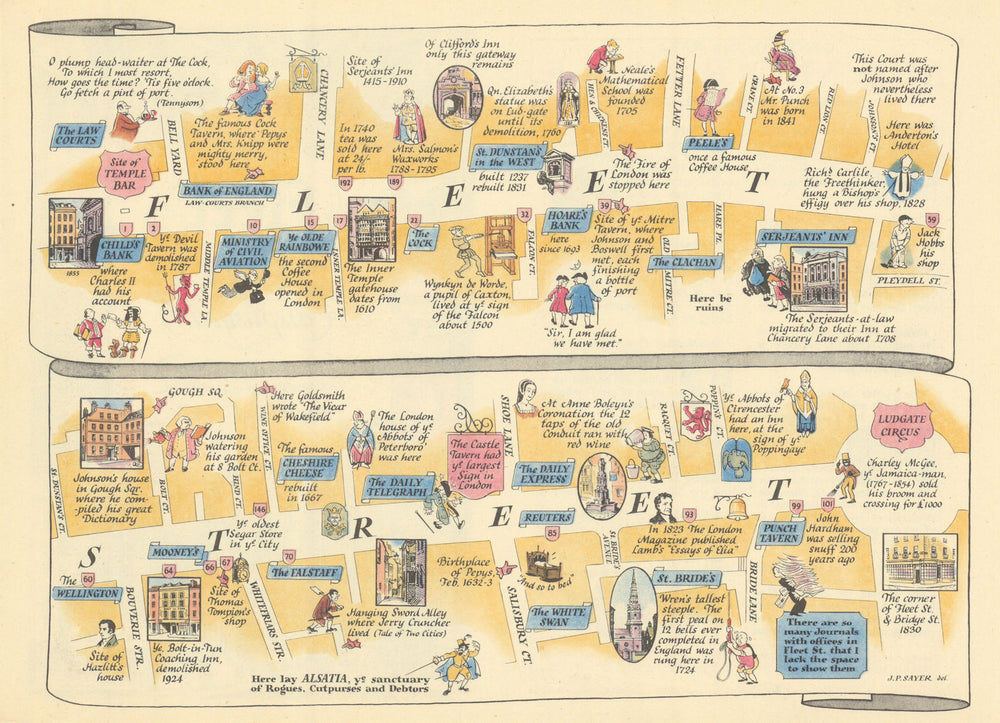 O plump head-waiter at The Cock,
To which I most resort,
How goes the time? 'Tis five o'clock.
Go fetch a pint of port.
(Tennyson)
The LAW
COURTS
Site of
TEMPLE
BAR
BELL YARD
The famous Cock
Tavern, where Pepys
and Mrs. Knipp were
mighty merry,
stood here
BANK of ENGLAND
LAW-COURTS BRANCH
CHANCERY LANE
Site of
Serjeants' Inn
1415-1910
In 1740
tea was
sold here
at 24/-
per lb.
192
189
Mrs. Salmon's
Waxworks
1788-1795
Of Clifford's Inn
only this gateway
remains
Qn. Elizabeth's
statue was
on Lud-gate
until its
demolition, 1760
St. DUNSTAN'S
in the WEST
built 1237
rebuilt 1831
HEN & CHICKENS CT.
Neale's
Mathematical
School was
founded
1705
The Fire of
London was
stopped here
FETTER LANE
PEELE'S
once a famous
Coffee House
CRANE CT.
At No. 3
Mr. Punch
was born
in 1841
RED LION CT.
JOHNSON'S CT.
This Court was
not named after
Johnson who
nevertheless
lived there
Here was
Anderton's
Hotel
Richd Carlile,
the Freethinker,
hung a Bishop's
effigy over his shop, 1828
F L E E T
1855
1
CHILD'S
BANK
where
Charles II
had his
account
2
ye Devil
Tavern was
demolished
in 1787
MIDDLE TEMPLE LA.
10
MINISTRY
of CIVIL
AVIATION
15
Ye OLDE
RAINBOWE
the second
Coffee
House
opened in
London
17
INNER TEMPLE LA.
The Inner
Temple
gatehouse
dates from
1610
22
The
COCK
Wynkyn de Worde,
a pupil of Caxton,
lived at ye sign
of the Falcon
about 1500
32
FALCON CT.
HOARE'S
BANK
here
since 1603
39
Site of ye Mitre
Tavern, where
Johnson and
Boswell first
met, each
finishing
a bottle
of port
"Sir, I am glad
we have met."
OLD MITRE CT.
The CLACHAN
HARE PL.
Here be
ruins
SERJEANTS' INN
The Serjeants-at-law
migrated to their Inn at
Chancery Lane about 1708
59
Jack
Hobbs
his
shop
PLEYDELL ST.
GOUGH SQ.
St. DUNSTAN'S CT.
Johnson's house
in Gough Sqr.
where he com-
piled his great
Dictionary
BOLT CT.
Johnson
watering
his garden
at 8 Bolt Ct.
HIND CT.
WINE OFFICE CT.
Here Goldsmith
wrote "The Vicar
of Wakefield"
The famous
CHESHIRE
CHEESE
rebuilt
in 1667
146
ye oldest
Segar Store
in ye City
The London
house of ye
Abbots of
Peterboro'
was here
The DAILY
TELEGRAPH
The Castle
Tavern had
ye largest
Sign in
London
SHOE LANE
At Anne Boleyn's
Coronation the 12
taps of the old
Conduit ran with
red wine
The DAILY
EXPRESS
REUTERS
85
RACQUET CT.
POPPINS CT.
ye Abbots of
Cirencester
had an Inn
here, at the
sign of ye
Poppingaye
LUDGATE
CIRCUS
Charley McGee,
ye Jamaica-man,
(1767-1854) sold
his broom and
crossing for £1000
S T R E E T
The 60
WELLINGTON
Site of
Hazlitt's
house
BOUVERIE STR.
MOONEY'S
64
66
67
Ye Bolt-in-Tun
Coaching Inn,
demolished
1924
Site of
Thomas
Tompion's
shop
WHITEFRIARS STR.
70
The FALSTAFF
Hanging Sword Alley
where Jerry Cruncher
lived (Tale of Two Cities)
Here lay ALSATIA, ye sanctuary
of Rogues, Cutpurses and Debtors
Birthplace
of Pepys,
Feb. 1632-3
SALISBURY CT.
"And so to bed"
The WHITE
SWAN
St. BRIDE'S
AVENUE
93
In 1823 The London
Magazine published
Lamb's "Essays of Elia"
St. BRIDE'S
Wren's tallest
steeple. The
first peal on
12 bells ever
completed in
England was
rung here in
1724
BRIDE LANE
99
PUNCH
TAVERN
101
John
Hardham
was selling
snuff 200
years ago
There are so
many Journals
with offices in
Fleet St. that I
lack the space
to show them
The corner
of Fleet St.
& Bridge St.
1850
J.P. SAYER del.